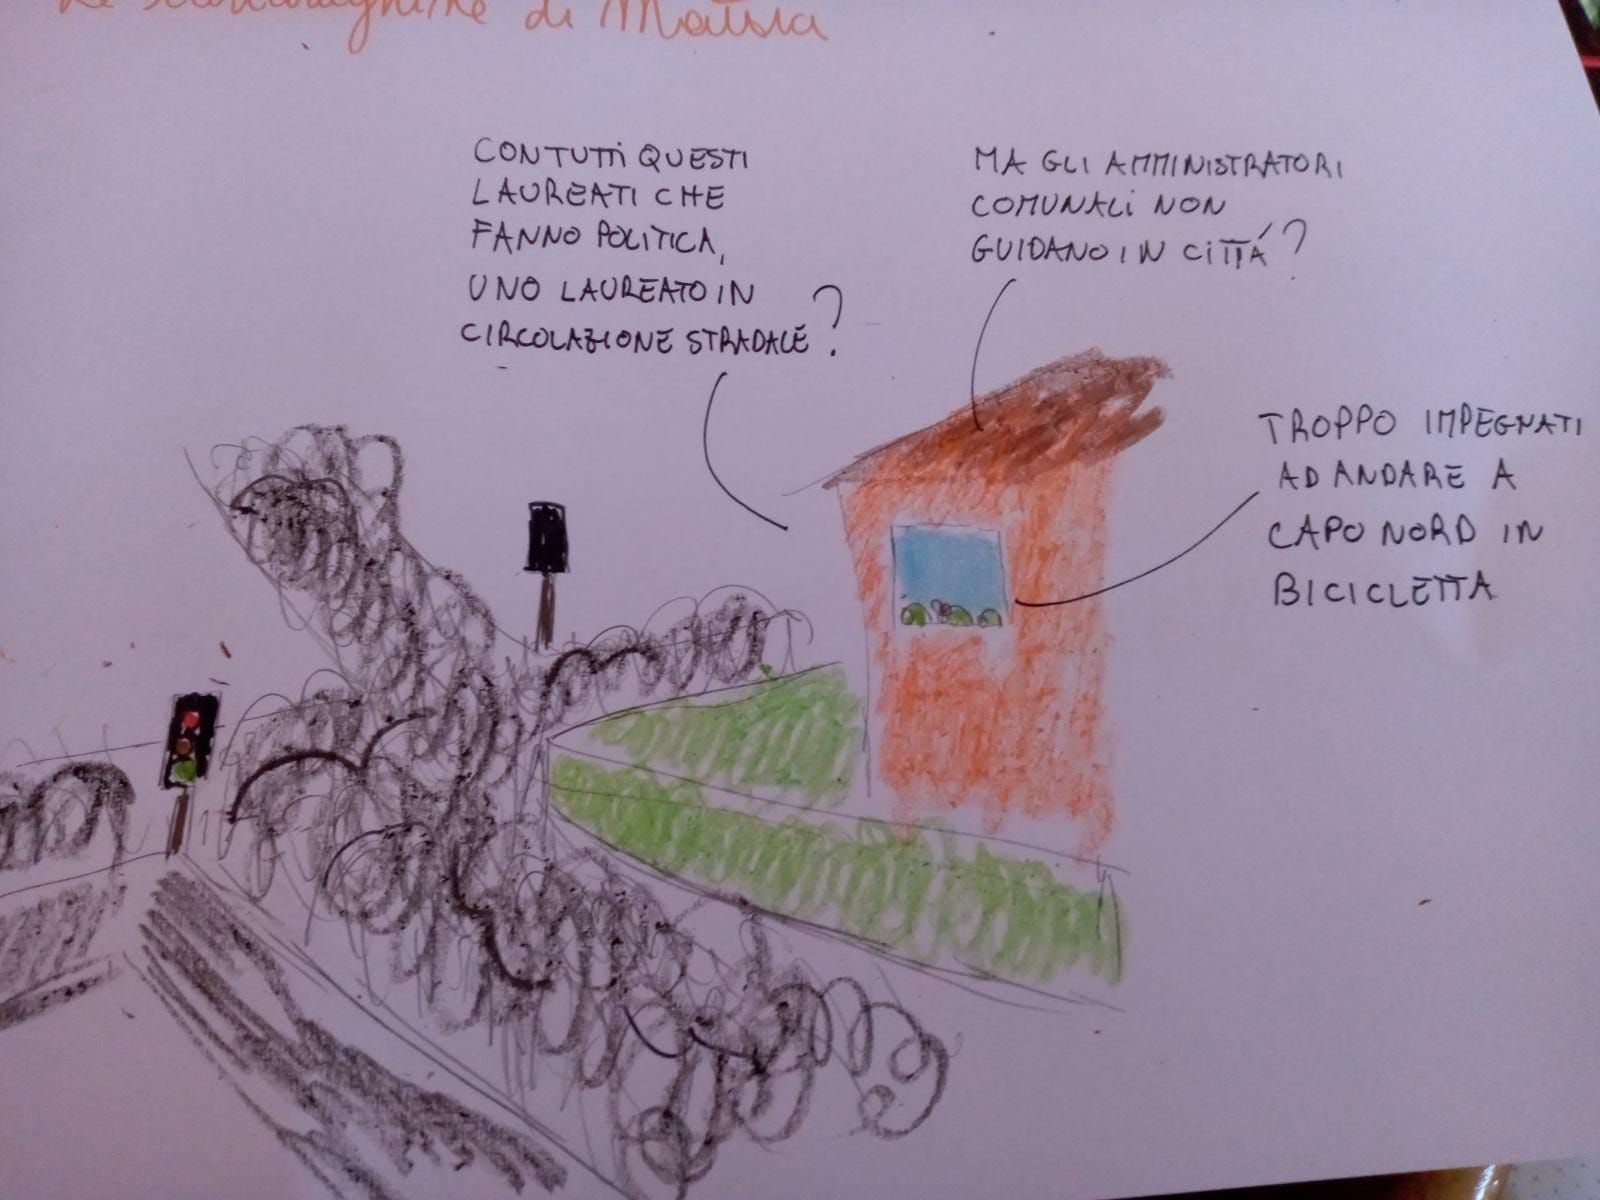 di Matisia
CON TUTTI QUESTI
LAUREATI CHE
FANNO POLITICA,
UNO LAUREATO IN
CIRCOLAZIONE STRADALE?
MA GLI AMMINISTRATORI
COMUNALI NON
GUIDANO IN CITTÁ?
TROPPO IMPEGNATI
AD ANDARE A
CAPO NORD IN
BICICLETTA